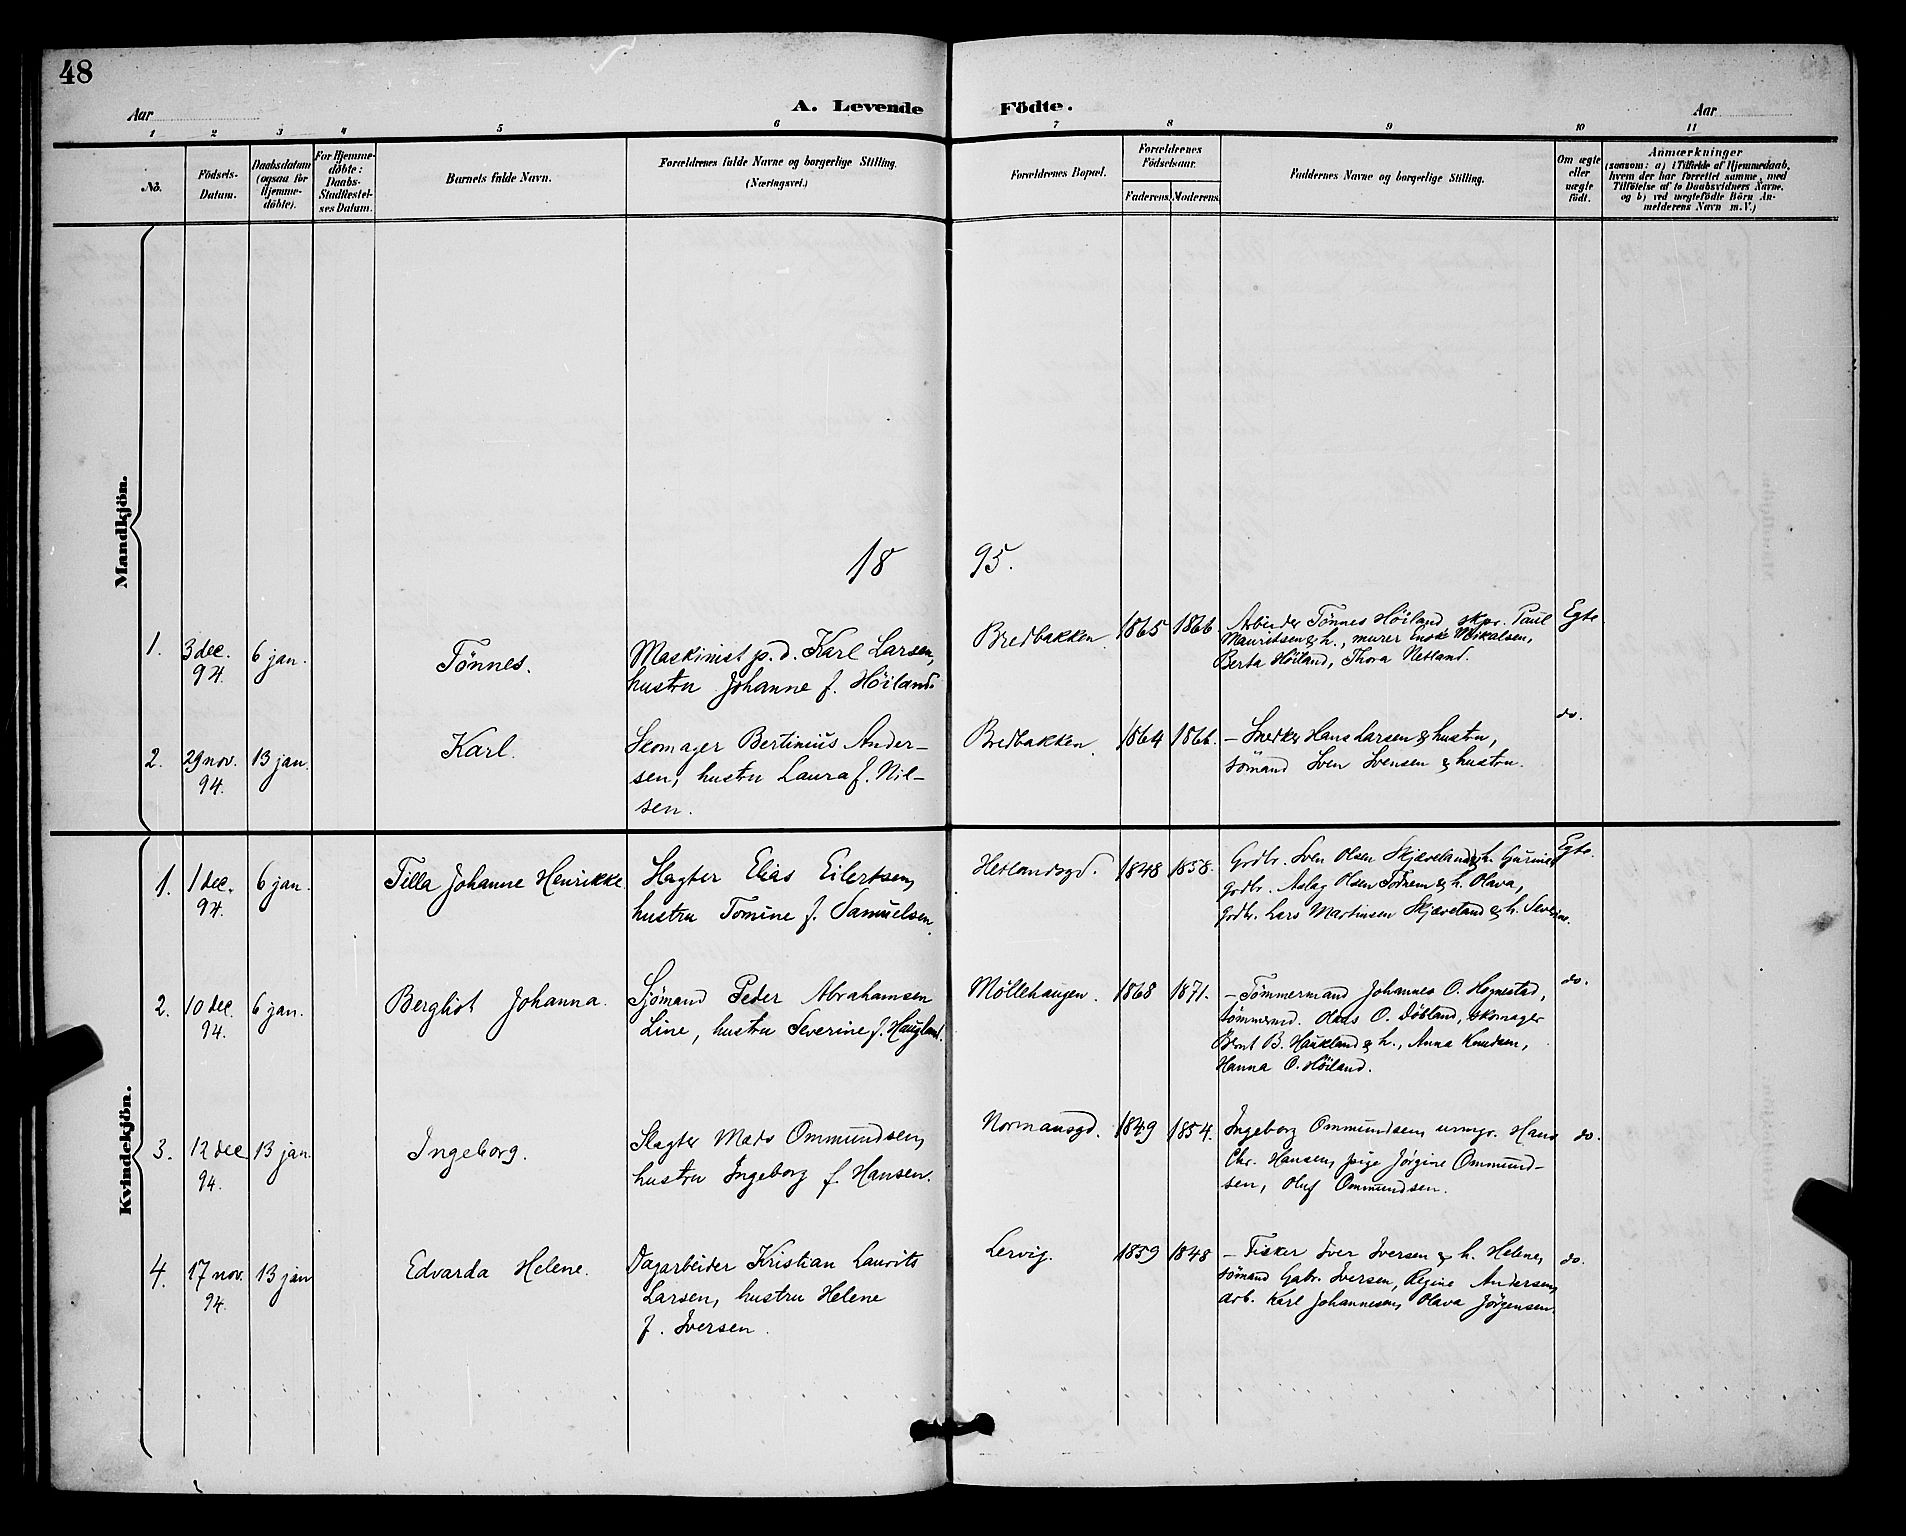 48
A. Levende Födte.
Aar
Aar
1 2 3 4 5 6 7 8 9 10 11
No.
Födsels-
Datum.
Daabsdatum
(ogsaa for
Hjemme-
döbte).
For Hjemme-
döbte:
Daabs-
Stadfæstel-
ses Datum.
Barnets fulde Navn.
Forældrenes fulde Navne og borgerlige Stilling.
(Næringsvei.)
Forældrenes Bopæl.
Forældrenes
Födselsaar.
Faderens. Moderens.
Faddernes Navne og borgerlige Stilling.
Om ægte
eller
uægte
födt.
Anmærkninger
(saasom: a) i Tilfælde af Hjemmedaab,
hvem der har forrettet samme, med
Tilföielse af to Daabsvidners Navne.
og b) ved uægtefödte Börn An-
melderens Navn m.V.)
Mandkjön.
18 95.
1.
3 dec.
94.
6 jan.
Tönnes.
Maskinist p.d. Karl Larsen,
hustru Johanne f. Höiland.
Bredbakken.
1865
1866
Arbeider Tönnes Höiland skpr. Paul
Mauritsen & h., murer Mikalsen,
Berta Höiland, Thora Netland.
Egte.
2.
29 nov.
94.
13 jan.
Karl.
Skomager Bertinius Ander-
sen, hustru Laura f. Nil-
sen.
Bredbakken.
1864
1866.
- Snedker Hans Larsen & hustru,
sömand Sven Svensen & hustru.
do.
Kvindekjön.
1.
1 dec.
94.
6 jan.
Tilla Johanne Henrikke
Slagter Elias Eilertsen,
hustru Tomine f. Samuelsen.
Hetlandsgd.
1848
1858.
Grdbr. Sven Olsen Skjæveland & h. Gurine,
grdbr. Aslag Olsen Todnem & h. Olava,
grdbr. Lars Martinsen Skjæveland & h. Severine.
Egte.
2.
10 dec.
94.
6 jan.
Bergliot Johanna.
Sjömand Peder Abrahamsen
Line, hustru Severine f. Haugland.
Möllehaugen.
1868
1871.
- Tömmermand Johannes O. Hognestad,
tömmermd. O. skomager
Bernt B. Haukland & h., Anna Knudsen,
Hanna O. Höiland.
do.
3.
12 dec
94.
13 jan.
Ingeborg.
Slagter Mads Ommundsen,
hustru Ingeborg f. Hansen.
Normansgd.
1849
1854.
Ingeborg Ommundsen, urmgr. Hans
Chr. Hansen, pige Jörgine Ommund-
sen, Oluf Ommundsen.
do.
4.
17 nov.
94.
13 jan
Edvarda Helene.
Dagarbeider Kristian Laurits
Larsen, hustru Helene
f. Iversen.
Lervig.
1859
1848
- Fisker Iver Iversen & h. Helene,
sömand Gabr. Iversen, Regine Andersen,
arb. Karl Johannesen, Olava Jörgensen.
do.